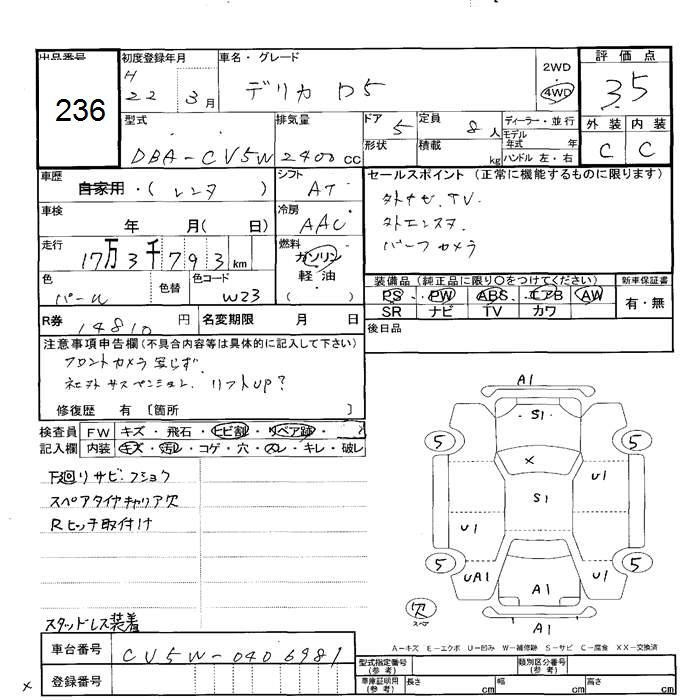 出品番号
236
初度登録年月
H
22 3月
車名・グレード
デリカ D5
2WD
4WD
評価点
3.5
外装 内装
C C
型式
DBA-CV5W
排気量
2400cc
ドア
5
形状
定員
8人
積載
kg
ディーラー・並行
モデル
年式 年
ハンドル 左・右
車歴
自家用・(レンタ)
シフト
AT
車検
年 月( 日)
冷房
AAC
走行
17万3千793km
燃料
ガソリン
軽油
( )
色
パール
色替
色コード
W23
R券
14810円
名変期限 月 日
セールスポイント (正常に機能するものに限ります)
外ナビ.TV.
外エンスタ
バックカメラ
装備品 (純正品に限り○をつけてください)
PS PW ABS エアB AW
SR ナビ TV カワ
新車保証書
有・無
後日品
注意事項申告欄(不具合内容等は具体的に記入して下さい)
フロントカメラ写らず.
社外サスペンション. リフトUP?
修復歴 有 〔箇所 〕
検査員
記入欄
FW キズ・飛石・ヒビ割・リペア跡・
内装 キズ・汚レ・コゲ・穴・スレ・キレ・破レ
下廻リサビ・フショク
スペアタイヤキャリア欠
Rヒッチ取付け
スタッドレス装着
A1
S1
5
5
×
U1
S1
U1
5
5
UA1
U1
A1
欠
スペア
A1
A-キズ E-エクボ U-凹み W-補修跡 S-サビ C-腐食 XX-交換済
車台番号
CV5W-0406981
登録番号
×
型式指定番号
(参考)
類別区分番号
(参考)
車庫証明用
(参考)
長さ cm 幅 cm 高さ cm